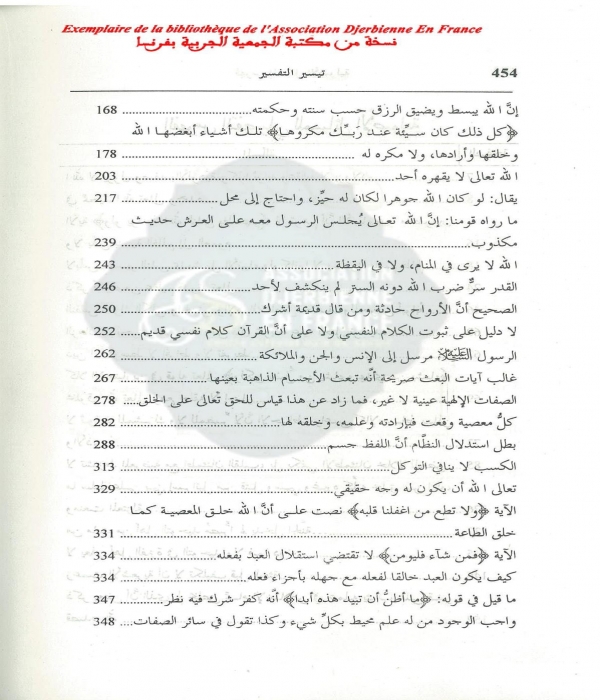 Exemplaire de la bibliothèque de l'Association Djerbienne En France
نسخة من مكتبة الجمعية الجربية بفرنسا
454 تيسير التفسير
إنَّ الله يبسط ويضيق الرزق حسب سنته وحكمته .......... 168
﴿كل ذلك كان سيِّئة عند رَبِّك مكروها﴾ تلك أشياء أبغضها الله
وخلقها وأرادها، ولا مكره له .......... 178
الله تعالى لا يقهره أحد .......... 203
يقال: لو كان الله جوهرا لكان له حيِّز، واحتاج إلى محل .......... 217
ما رواه قومنا: إنَّ الله تعالى يُجلس الرسول معه على العرش حديث
مكذوب .......... 239
الله لا يرى في المنام، ولا في اليقظة .......... 243
القدر سرٌّ ضرب الله دونه الستر لم ينكشف لأحد .......... 246
الصحيح أنَّ الأرواح حادثة ومن قال قديمة أشرك .......... 250
لا دليل على ثبوت الكلام النفسي ولا على أنَّ القرآن كلام نفسي قديم .... 252
الرسول مرسل إلى الإنس والجن والملائكة .......... 262
غالب آيات البعث صريحة أنَّه تبعث الأجسام الذاهبة بعينها .......... 267
الصفات الإلهية عينية لا غير، فما زاد عن هذا قياس للحق تعالى على الخلق. 278
كلُّ معصية وقعت فبإرادته وعلمه، وخلقه لها .......... 282
بطل استدلال النظَّام أنَّ اللفظ جسم .......... 288
الكسب لا ينافي التوكل .......... 313
تعالى الله أن يكون له وجه حقيقي .......... 329
الآية ﴿ولا تطع من اغفلنا قلبه﴾ نصت على أنَّ الله خلق المعصية كما
خلق الطاعة .......... 331
الآية ﴿فمن شآء فليومن﴾ لا تقتضي استقلال العبد بفعله .......... 334
كيف يكون العبد خالقا لفعله مع جهله بأجزاء فعله .......... 334
ما قيل في قوله: ﴿ما أظنُّ أن تبيد هذه أبدا﴾ أنَّه كفر شرك فيه نظر .......... 347
واجب الوجود من له علم محيط بكلِّ شيء وكذا تقول في سائر الصفات .... 348
ASSOCIATION
DJERBIENNE
EN FRANCE